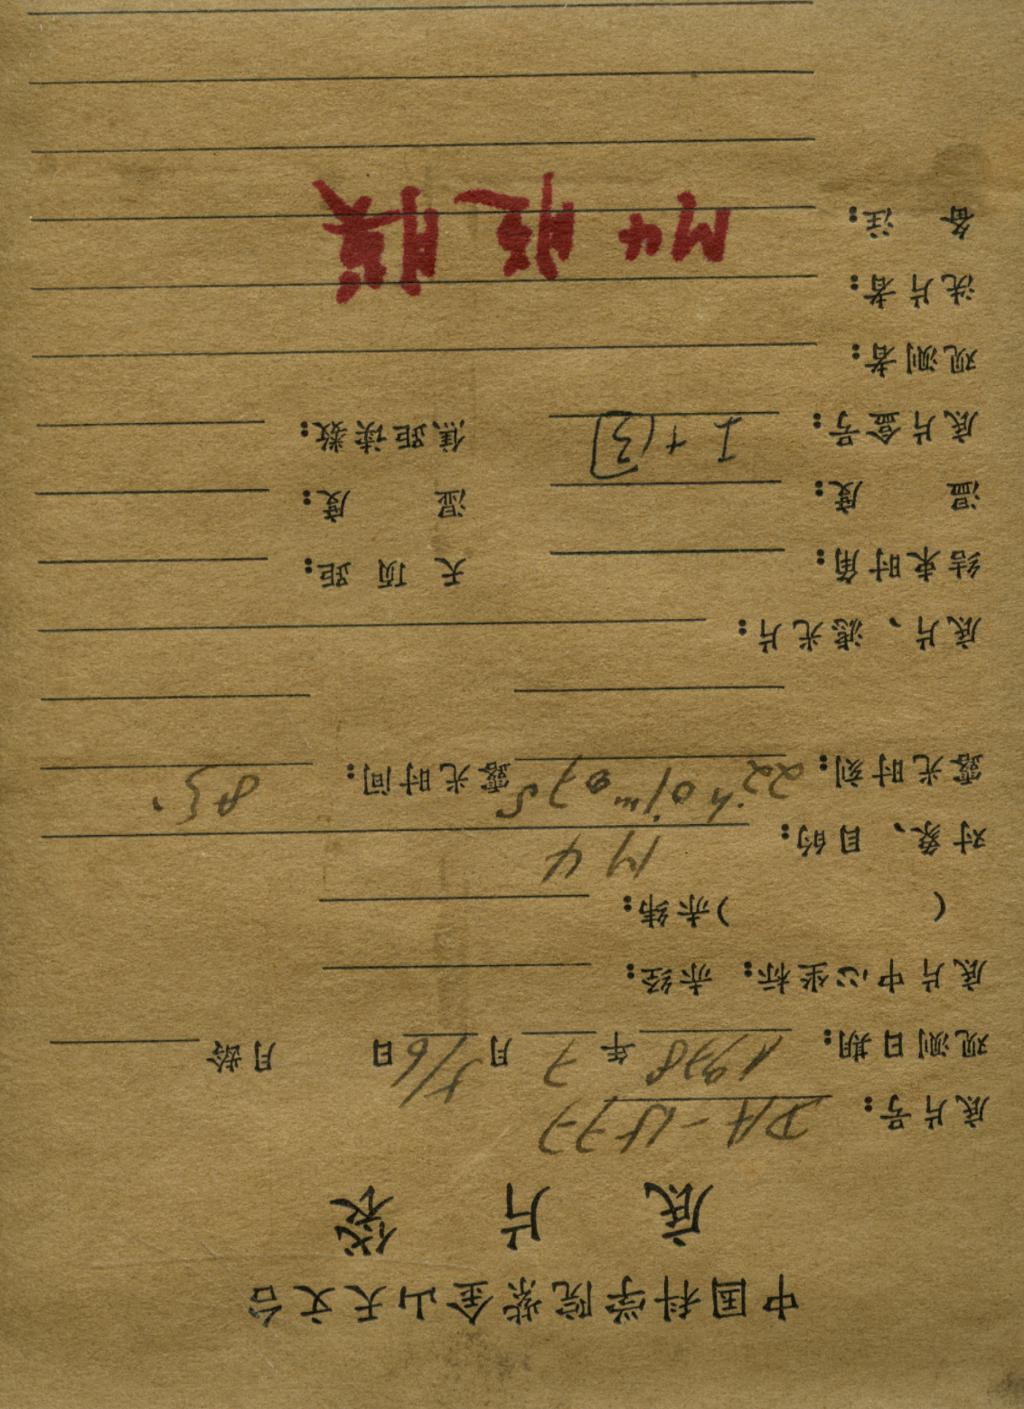 中国科学院紫金山天文台
底片袋
底片号: DA-U577
观测日期: 1978年7月5/6日 月龄
底片中心坐标: 赤经:
( )赤纬:
对象、目的: M4
露光时刻: 22h01m07s 露光时间: 85
底片、滤光片:
结束时角: 天顶距:
温度: 湿度:
底片盒号: I+(3) 焦距读数:
观测者:
洗片者:
备注: M4 脱膜